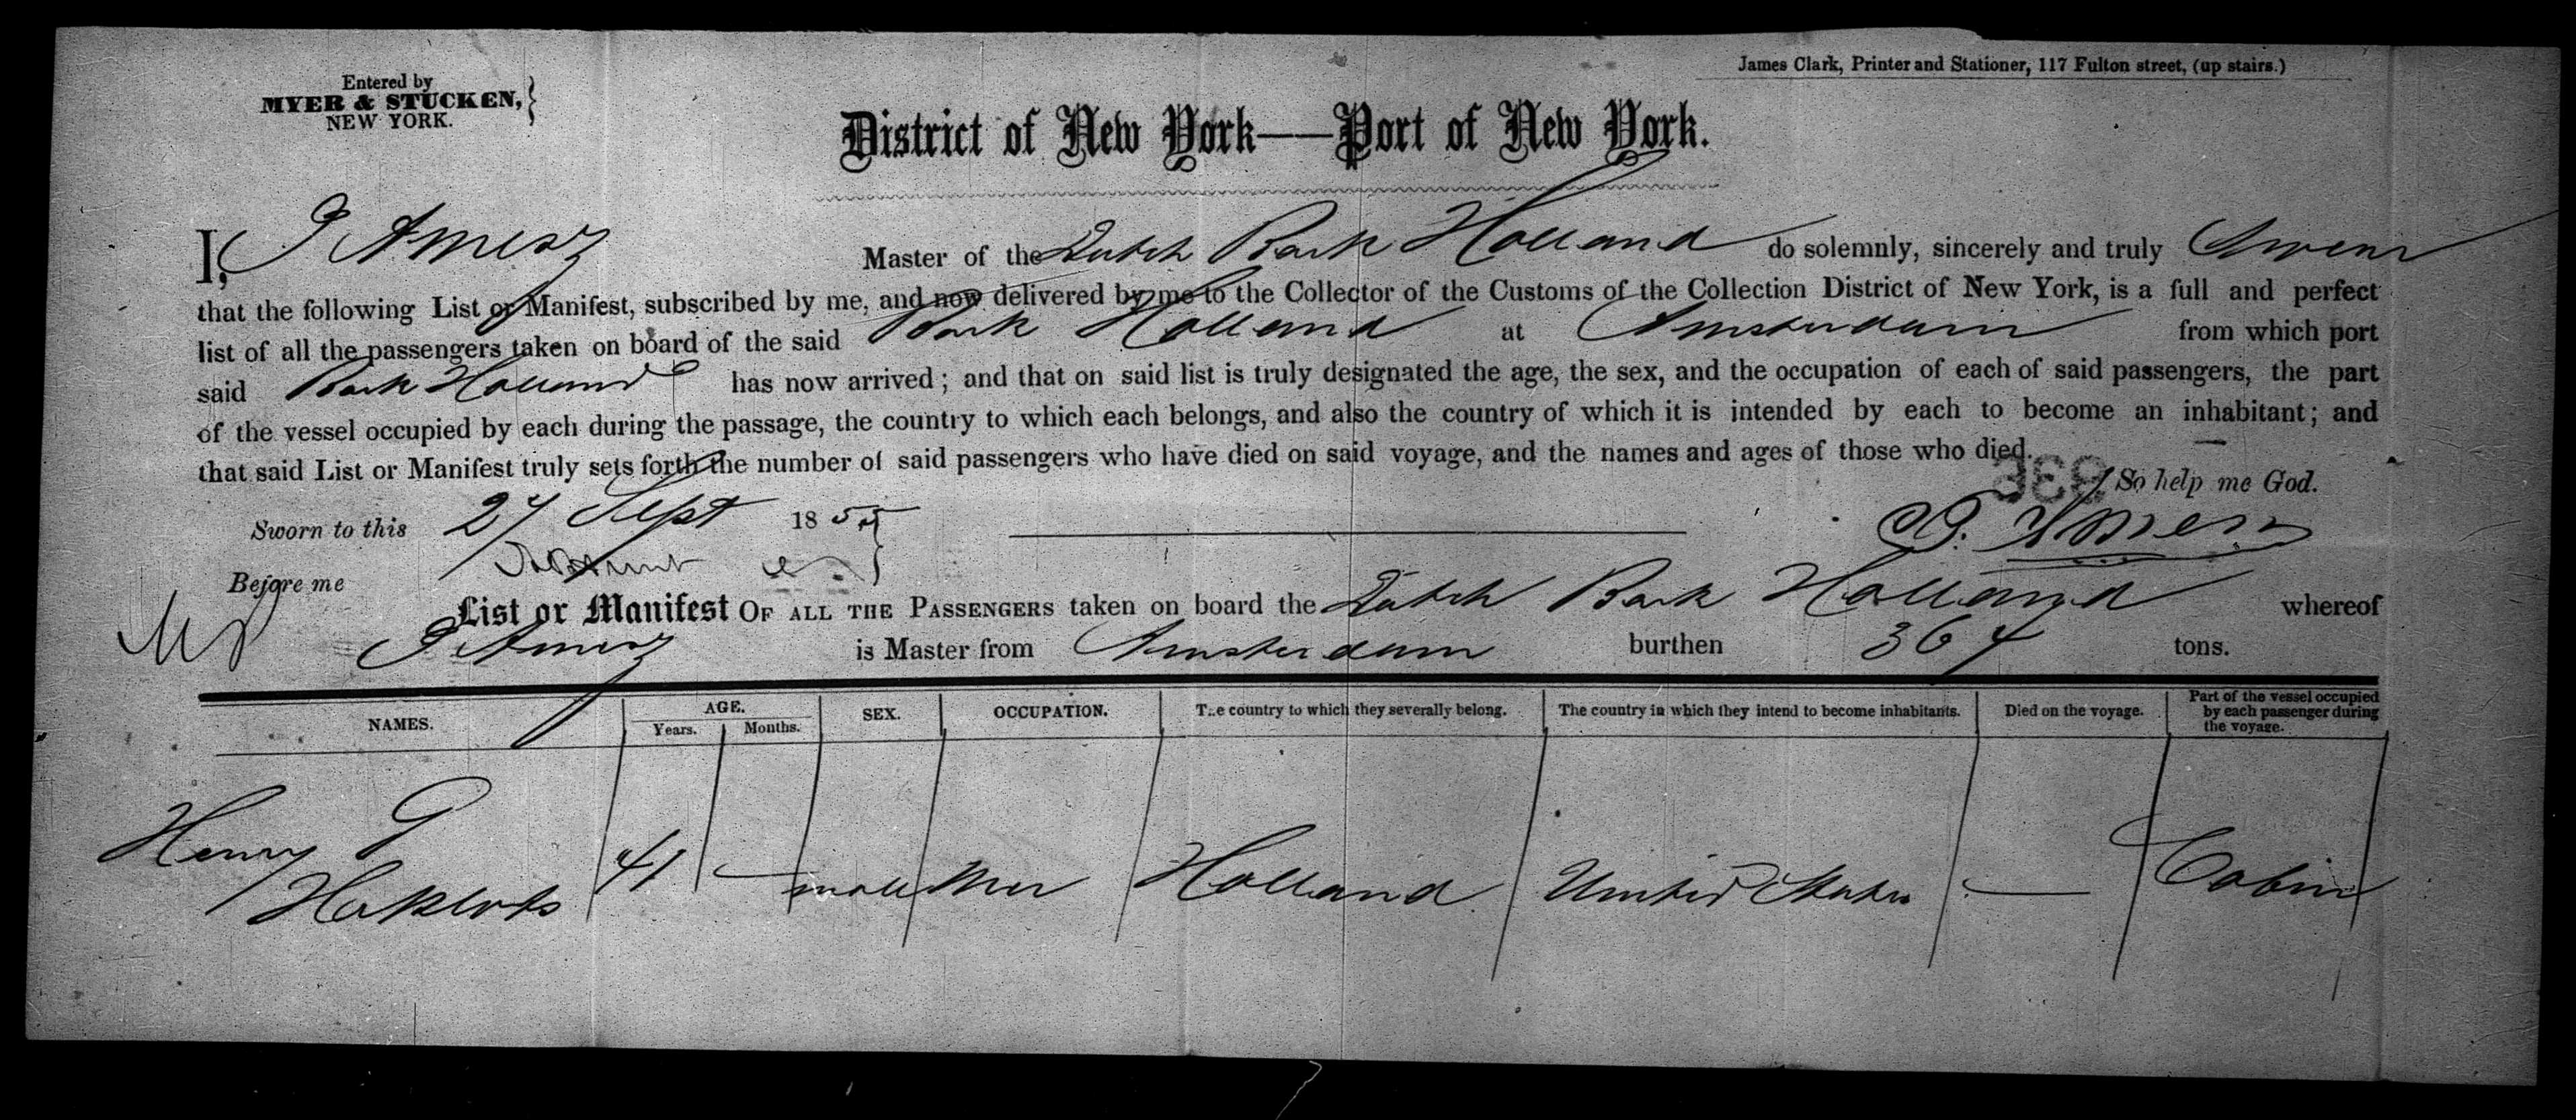 James Clark, Printer and Stationer, 117 Fulton street, (up stairs.)
Entered by
MYER & STUCKEN,
NEW YORK.
District of New York——Port of New York.
I, J Amesz Master of the Dutch Bark Holland do solemnly, sincerely and truly Swear
that the following List or Manifest, subscribed by me, and now delivered by me to the Collector of the Customs of the Collection District of New York, is a full and perfect
list of all the passengers taken on board of the said Bark Holland at Amsterdam from which port
said Bark Holland has now arrived; and that on said list is truly designated the age, the sex, and the occupation of each of said passengers, the part
of the vessel occupied by each during the passage, the country to which each belongs, and also the country of which it is intended by each to become an inhabitant; and
that said List or Manifest truly sets forth the number of said passengers who have died on said voyage, and the names and ages of those who died.
So help me God.
Sworn to this 27 Sept 1855
Before me
List or Manifest OF ALL THE PASSENGERS taken on board the Dutch Bark Holland whereof
J Amesz is Master from Amsterdam burthen 364 tons.
NAMES. AGE. Years. Months. SEX. OCCUPATION. The country to which they severally belong. The country in which they intend to become inhabitants. Died on the voyage. Part of the vessel occupied by each passenger during the voyage.
Henry G 41 — male Mer Holland United States — Cabin